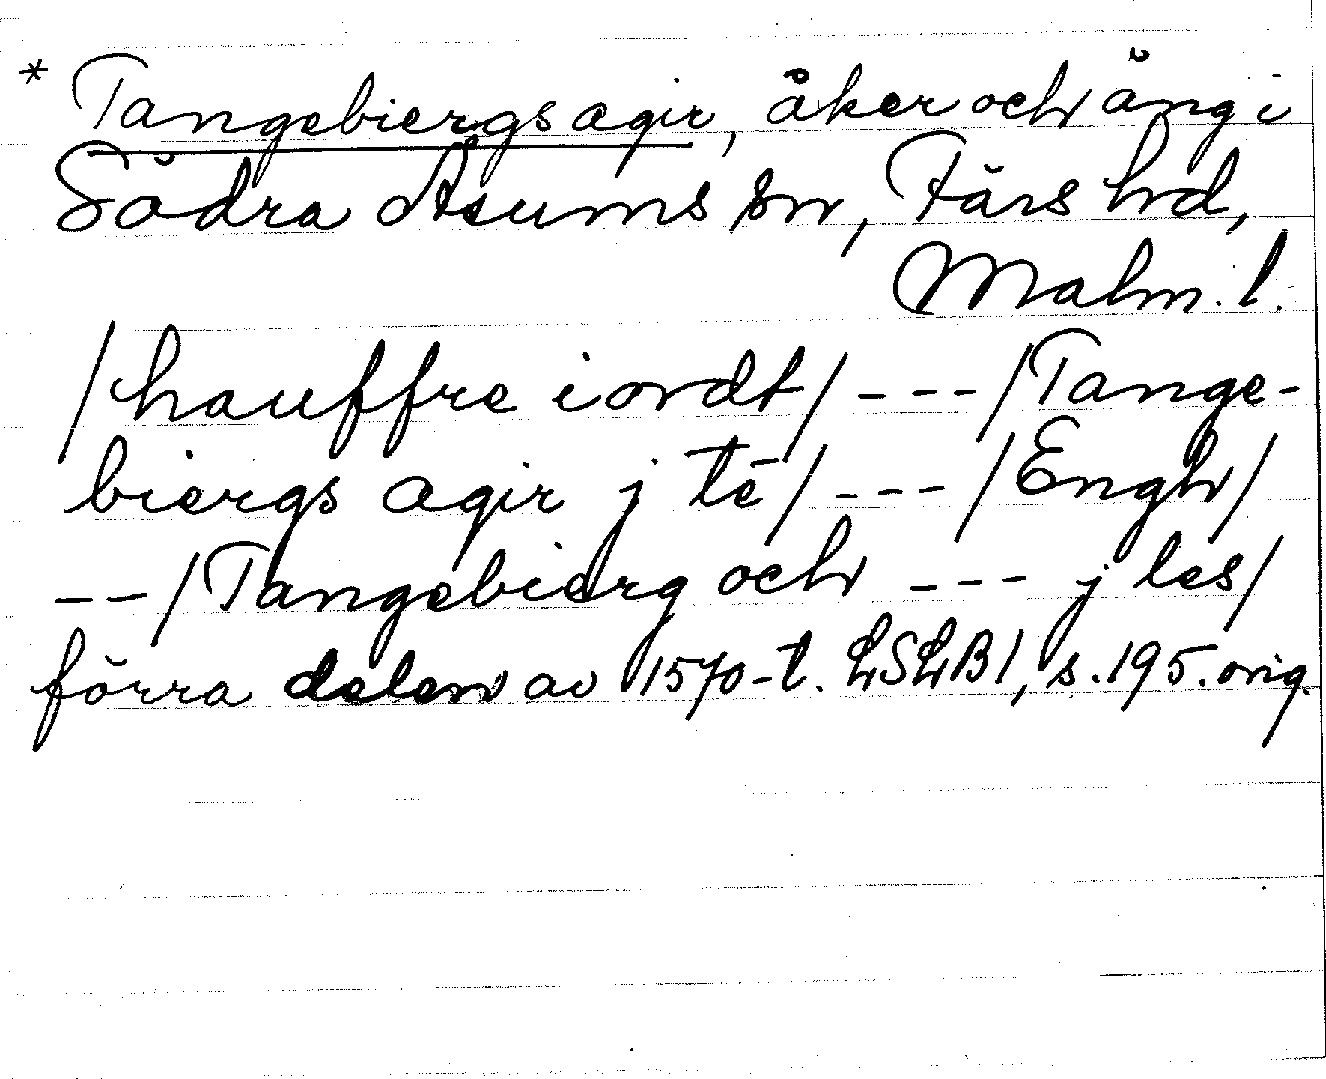 * Tangebiergs agir, åker och äng i
Södra Åsums sn, Färs hd,
Malm. l.
/hauffre iordt/ --- /Tange-
biergs agir j te/ --- /Engh/
-- /Tangebierg och --- j les/
förra delen av 1570-t. LSLB1, s. 195. orig.